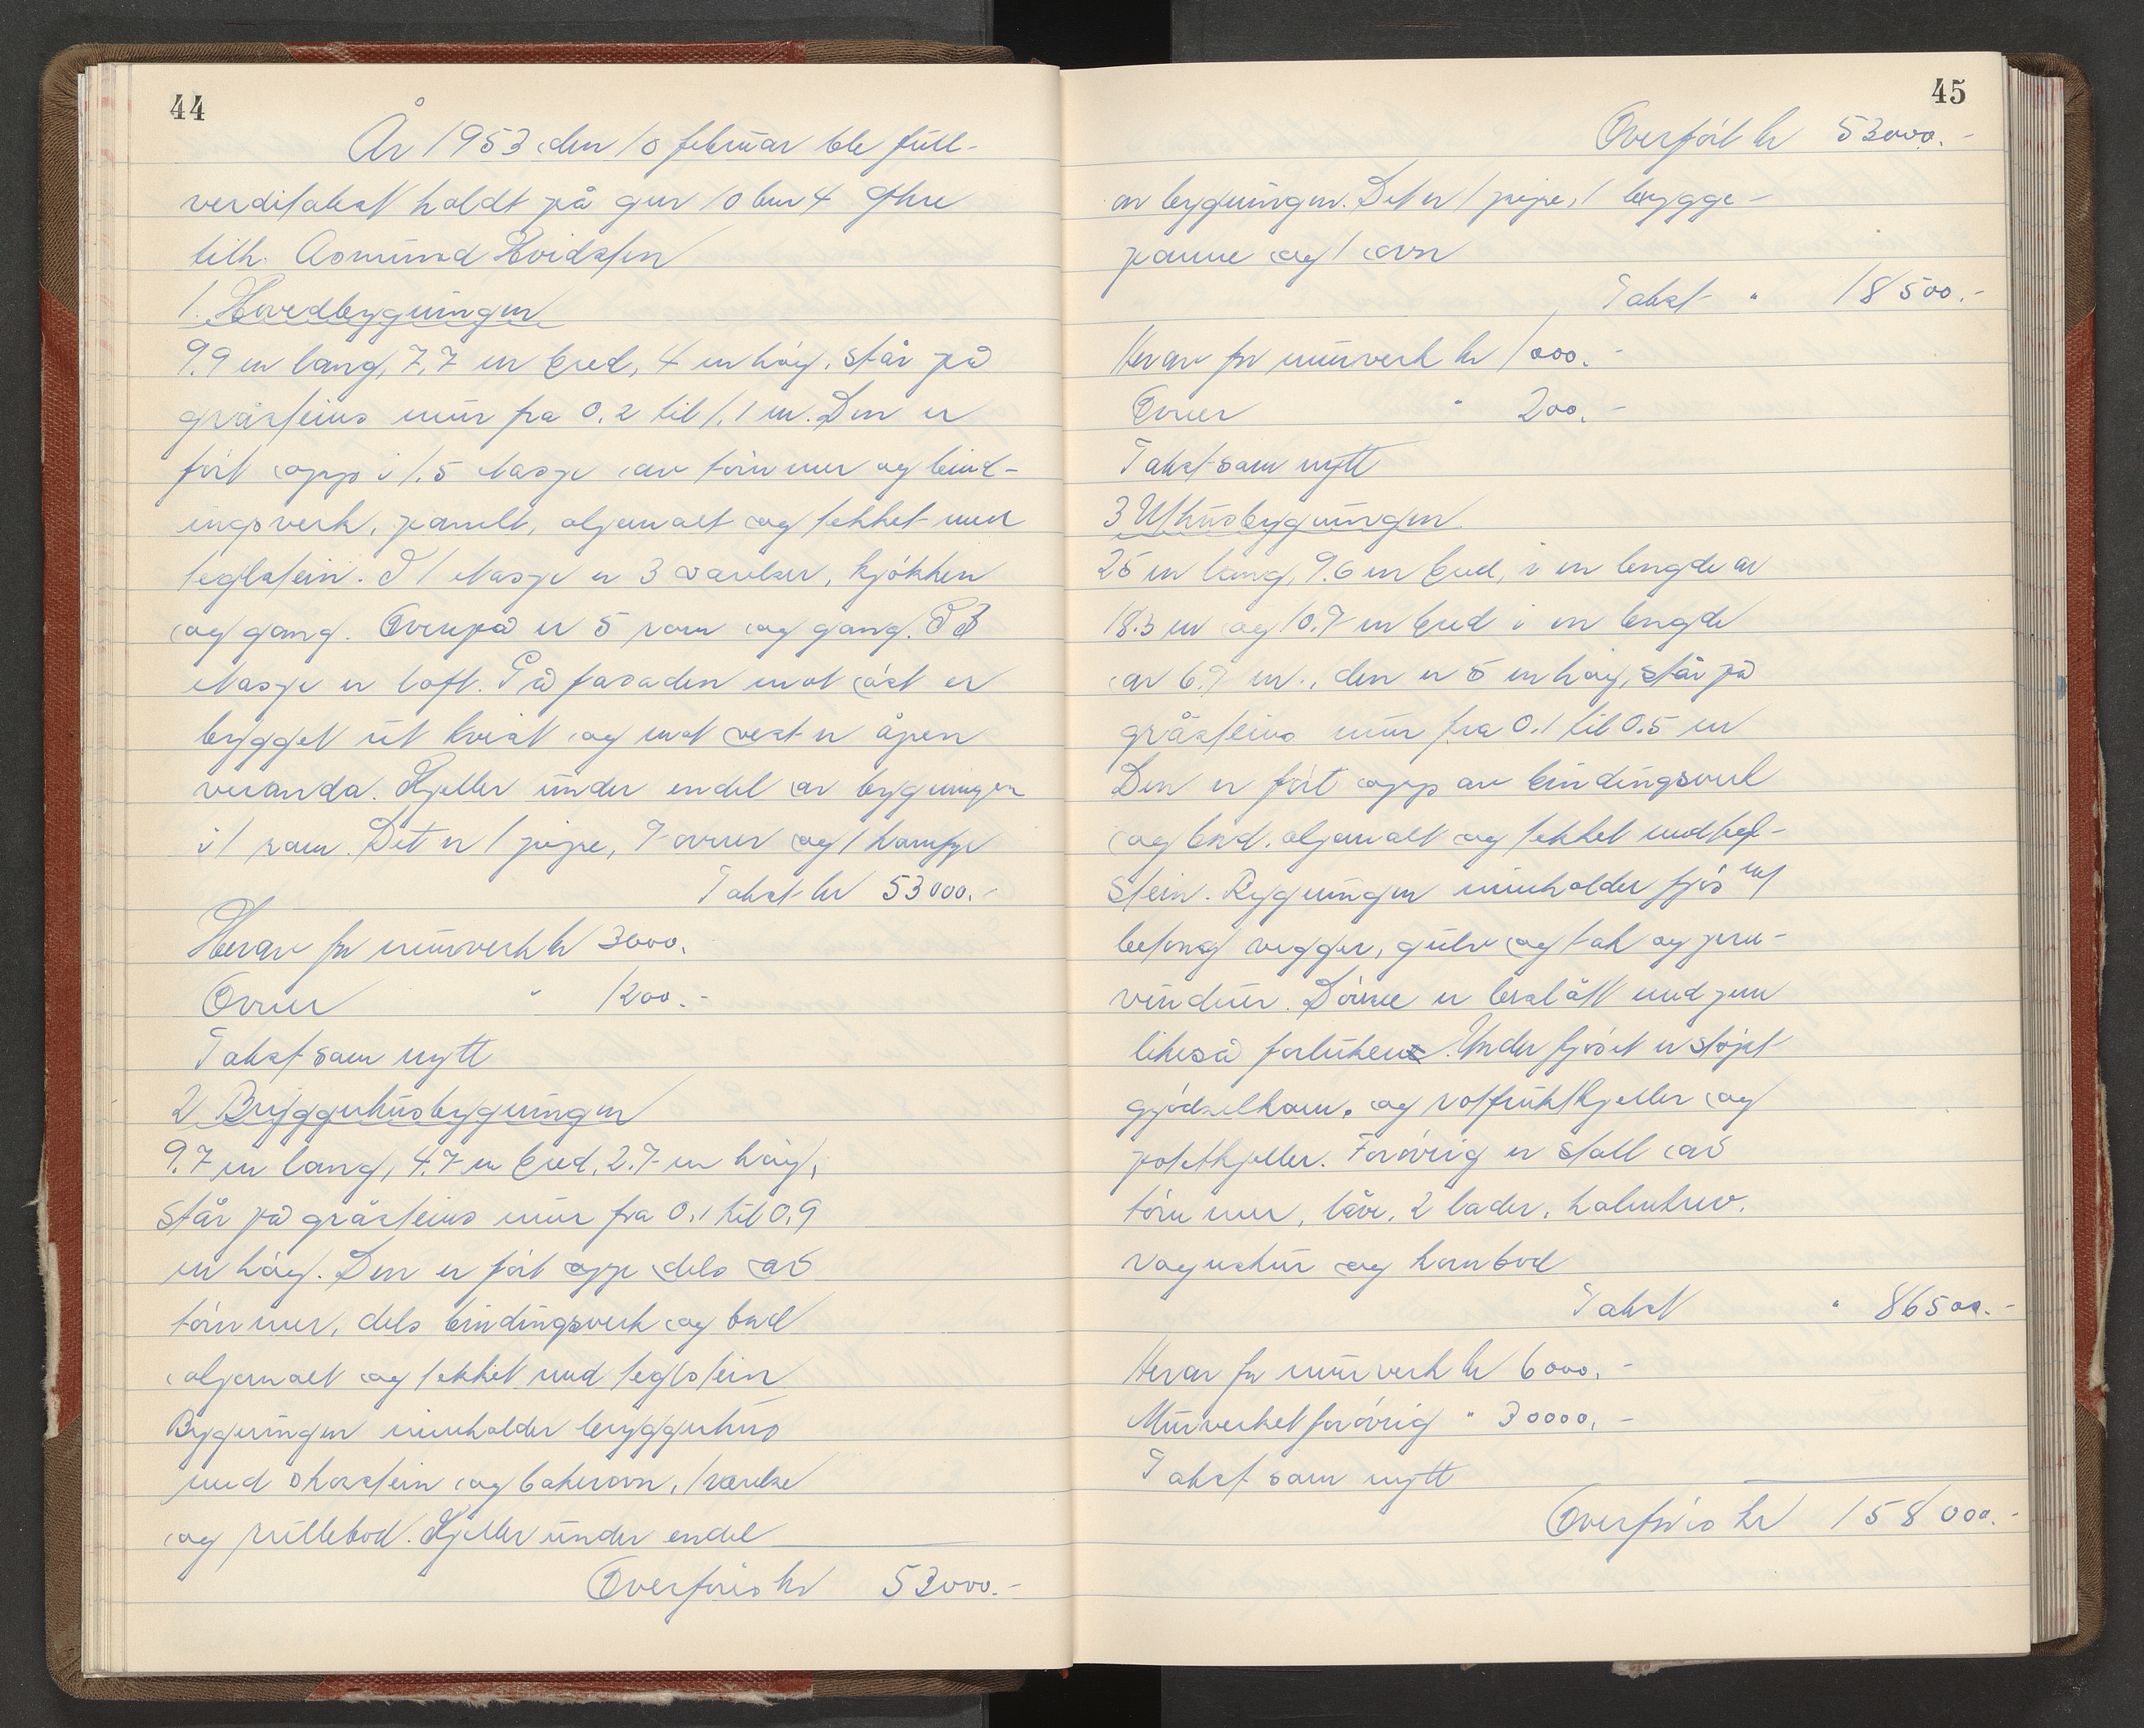 44
År 1953 den 10 februar ble full-
verditakst holdt på gnr 10 bnr 4
tilh. Asmund Hvidsten
1. Hovedbygningen
9.9 m lang, 7.7 m bred, 4 m høy, står på
gråsteins mur fra 0.2 til 1.1 m. Den er
ført opp i 1.5 etasje av tømmer og bind-
ingsverk, panelt, oljemalt og tekket med
teglstein. I 1 etasje er 3 værelser, kjøkken
og gang. Ovenpå er 5 rom og gang. I 3
etasje er loft. På fasaden mot øst er
bygget ut kvist og mot vest er åpen
veranda. Kjeller under endel av bygningen
i 1 rom. Det er 1 pipe, 7 ovner og 1 komfyr
Takst kr 53000.-
Herav for murverk kr 3000.
Ovner " 1200.-
Takst som nytt
2 Bryggerhusbygningen
9.7 m lang, 4.7 m bred, 2.7 m høy,
står på gråsteins mur fra 0.1 til 0.9
m høy. Den er ført opp dels av
tømmer, dels bindingsverk og bord
oljemalt og tekket med teglstein
Bygningen inneholder bryggerhus
med skorstein og bakerovn, 1 værelse
og rullebod. Kjeller under endel
Overføres kr 53000.-
45
Overført kr 53000.-
av bygningen. Det er 1 pipe, 1 brygge-
panne og 1 ovn
Takst " 18500.-
Herav for murverk kr 1000.-
Ovner " 200.-
Takst som nytt
3 Uthusbygningen
25 m lang, 9.6 m bred, i en lengde av
18.3 m og 10.7 m bred i en lengde
av 6.7 m., den er 5 m høy, står på
gråsteins mur fra 0.1 til 0.5 m
Den er ført opp av bindingsverk
og bord, oljemalt og tekket med tegl-
stein. Bygningen inneholder fjøs m/
betong vegger, gulv og tak og jern-
vinduer. Dørene er beslått med jern
likeså forluken. Under fjøset er støpt
gjødselkom. og rotfruktkjeller og
potetkjeller. Forøvrig er stall av
tømmer, låve, 2 lader, halmtrev,
vognskur og kornbod
Takst " 86500.-
Herav for murverk kr 6000.-
Murverket forøvrig " 30000.-
Takst som nytt
Overføres kr 158000.-